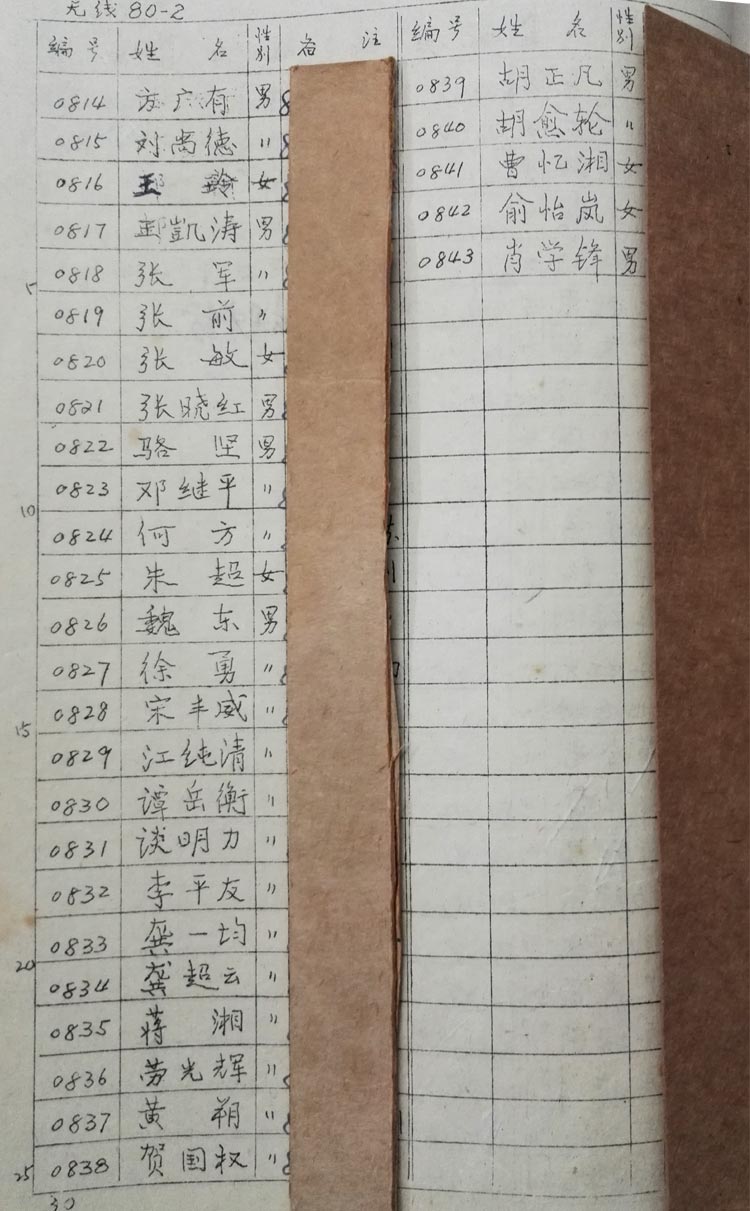 无线80-2
编号 姓名 性别 备注 编号 姓名 性别
0814 方广有 男
0815 刘尚德 〃
0816 王玲 女
0817 王凯涛 男
5 0818 张军 〃
0819 张前 〃
0820 张敏 女
0821 张晓红 男
0822 骆坚 男
0823 邓继平 〃
10 0824 何方 〃
0825 朱超 女
0826 魏东 男
0827 徐勇 〃
15 0828 宋丰威 〃
0829 江纯清 〃
0830 谭岳衡 〃
0831 谈明力 〃
0832 李平友 〃
0833 龚一均 〃
20 0834 龚超云 〃
0835 蒋湘 〃
0836 劳光辉 〃
0837 黄朔 〃
25 0838 贺国权 〃
30
0839 胡正凡 男
0840 胡愈轮 〃
0841 曹忆湘 女
0842 俞怡岚 女
0843 肖学锋 男